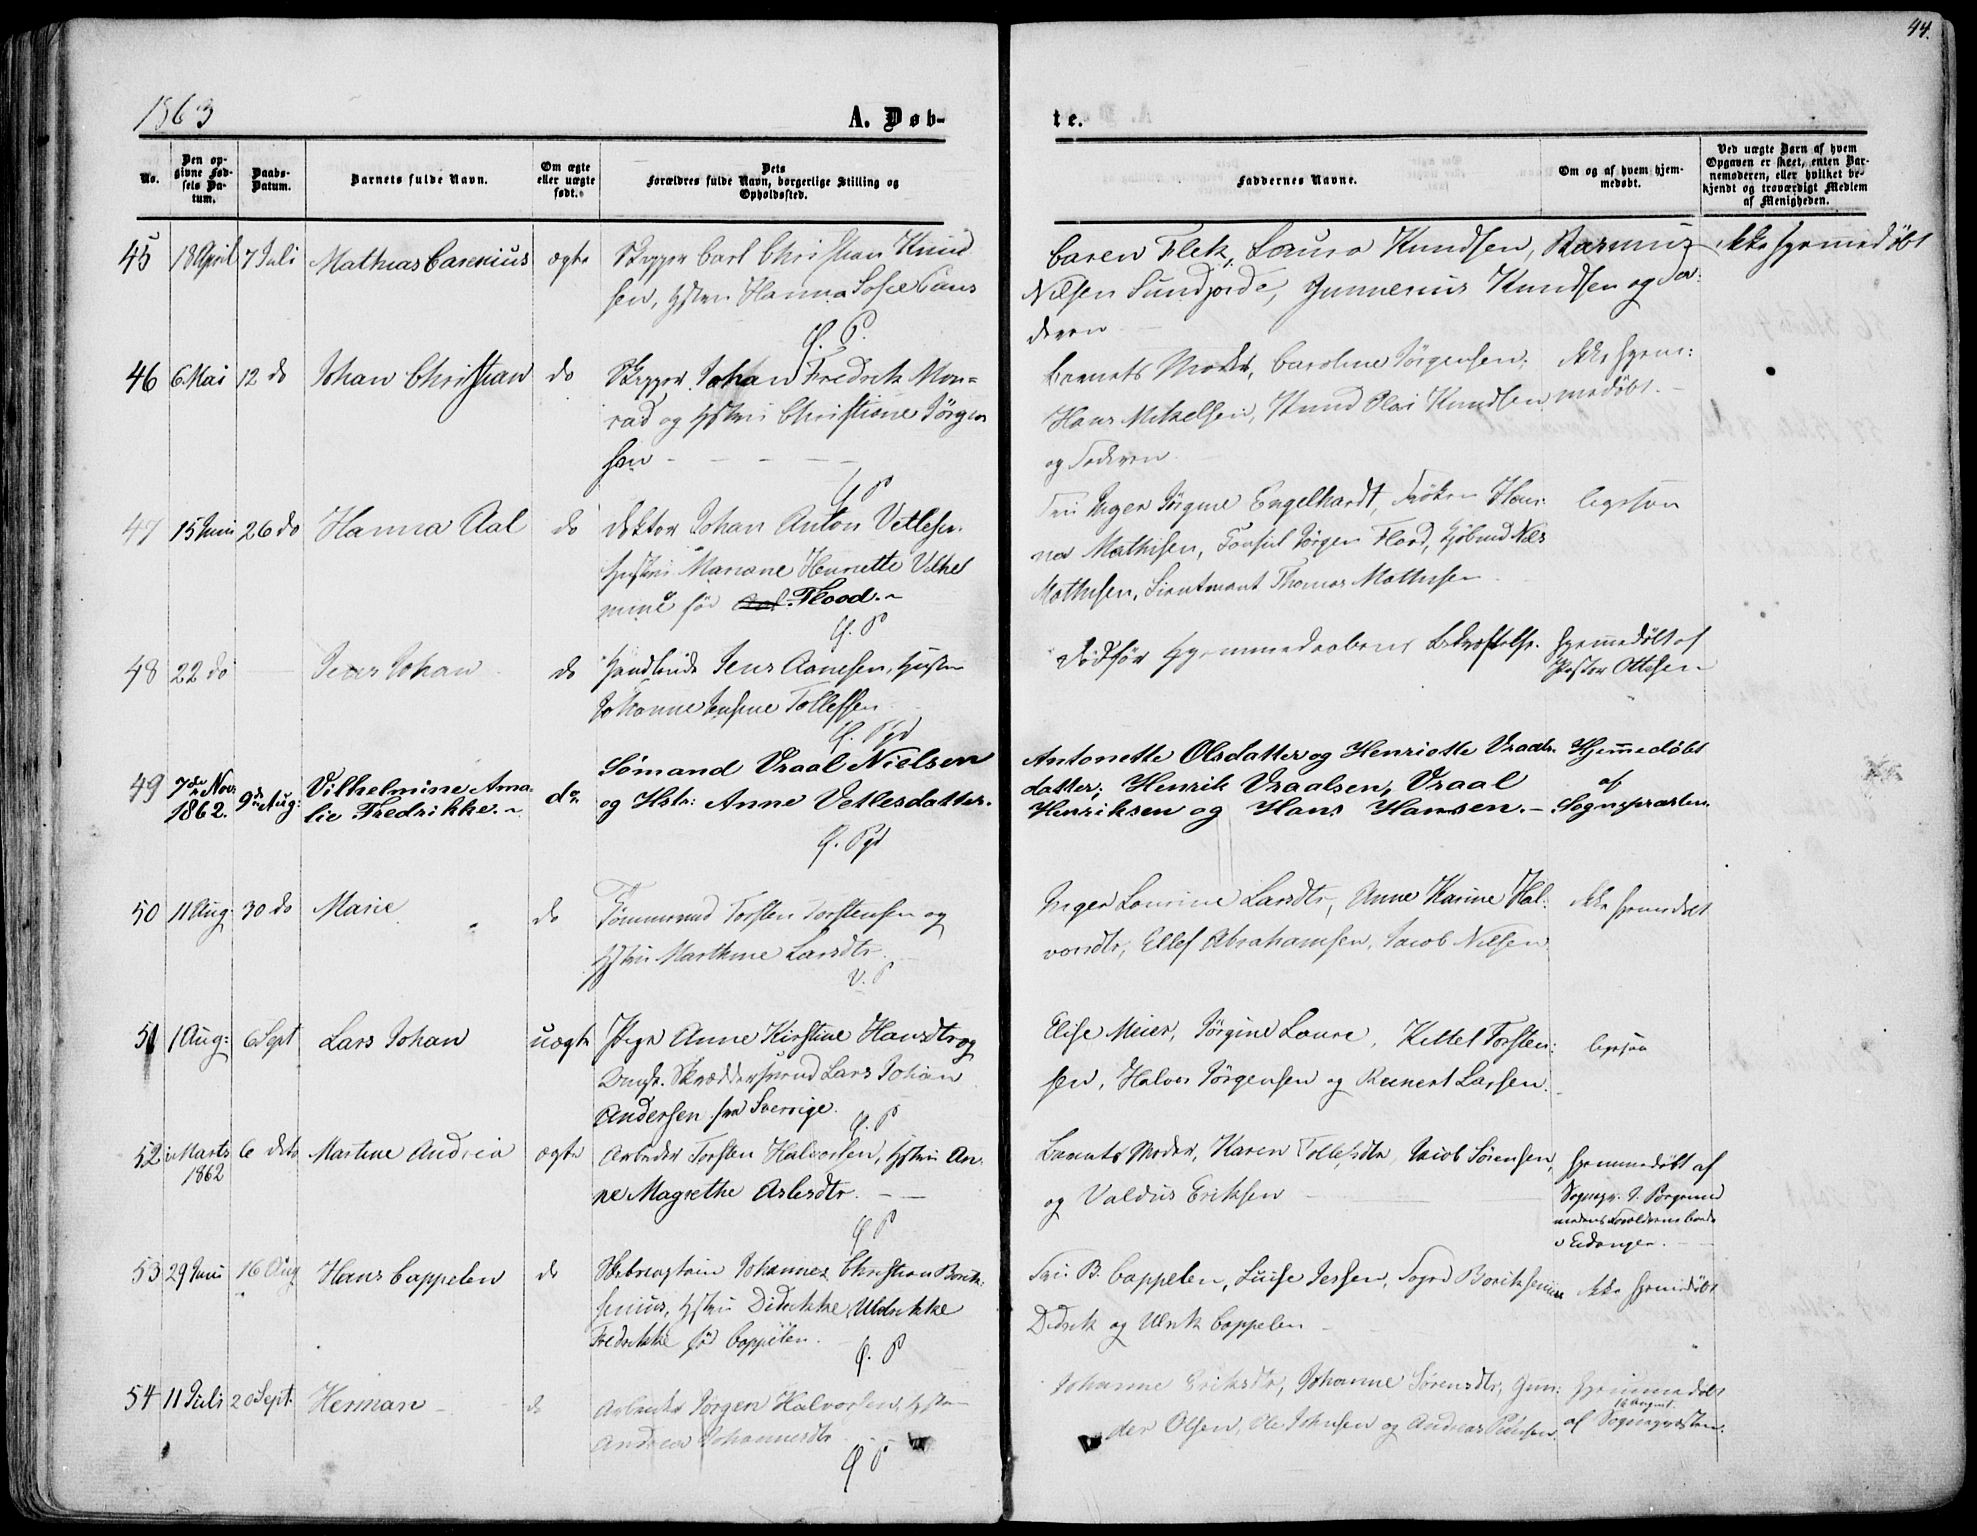 44.
1863
A. Døb-
te.
No.
Den op-
givne Fød-
sels Da-
tum.
Daabs-
Datum.
Barnets fulde Navn.
Om ægte
eller uægte
født.
Dets
Forældres fulde Navn, borgerlige Stilling og
Opholdssted.
Faddernes Navne.
Om og af hvem hjem-
medøbt.
Ved uægte Børn af hvem
Opgaven er skeet, enten Bar-
nemoderen, eller hvilket be-
kjendt og troværdigt Medlem
af Menigheden.
45 18 April 7 Juli Mathias Carenius ægte Skipper Carl Christian Knud
sen, Hstru Hanna Sofie
G. P.
Caren Flek, Laura Knudsen, Rasmus
Nilsen Sundjorde, Gunnerius Knudsen og Fa-
deren
Ikke hjemmedøbt
46 6 Mai 12 do Johan Christian do Skipper Johan Fredrik Mon=
rad og Hstru Christiane Jørgen
sen
G. P
Barnets Moder, Caroline Jørgensen,
Hans Mikelsen, Knud Olai Knudsen
og Faderen
Ikke hjem:
medøbt.
47 15 Juni 26 do Hanna Aal do Doktor Johan Anton Vetlesen.
Hustru Mariane Henriette Vilhel
mine fød Aal Flood.
G. P
Fru Inger Jørgine Engelhardt, Frøken Han-
na Mathisen, Konsul Jørgen Flood, Kjøbmd Nils
Mathisen, Lieutenant Thomas Mathisen
ligesaa
48 22 do Jens Johan do Handlende Jens Aanesen, Hustru
Johanne Tollefsen
G. Pgd
Død før Hjemmedaabens Bekræftelse.
Hjemmedøbt af
Pastor Ottesen
49 7de Nov: 1862. 9de Aug: Vilhelmine Ama-
lie Fredrikke. do Sømand Vraal Nielsen
og Hstr: Anne Vetlesdatter.
G. Pgd
Antonette Olsdatter og Henriette Vraals-
datter; Henrik Vraalsen, Vraal
Henriksen og Hans Hansen.
Hjemmedøbt
af
Sognepræsten.
50 11 Aug: 30 do Marie do Tømmermd Torsten Torstensen og
Hstru Marthine Larsdtr.
V. P
Inger Lovrine Larsdtr, Anne Karine Hal-
vorsdtr, Ellef Abrahamsen, Jacob Nilsen
Ikke hjemmedøbt
51 1 Aug: 6 Sept Lars Johan uægte Pige Anne Kirstine Hansdtr og
Ungk. Skræddersvend Lars Johan
Andersen fra Sverrige.
G. P
Elise Meier, Jørgine Laure, Kittel Torsten-
sen, Halvor Jørgensen og Reinert Larsen.
ligesaa
52 Marts 1862 6 dito Martine Andrea ægte Arbeider Torsten Halvorsen, Hstru An-
ne Magrethe Aslesdtr.
G P
Barnets Moder, Karen Tollefsdtr, Jacob Sørensen,
og Valdus Eriksen
Hjemmedøbt af
Sognepr. i Porsgrund
medens Forældrene boede
i Eidanger.
53 29 Juni 16 Aug Hans Cappelen do Skibscaptain Johannes Christian Borik-
senius, Hstru Didrikke Uldrikke
Fredrikke fød Cappelen.
G. P
Fru B. Cappelen, Luise Jessen, Boriksenius
Didrik og Ulrik Cappelen
Ikke hjemmedøbt
54 11 Juli 20 Sept. Herman do Arbeider Jørgen Halvorsen, Hstru
Andrea Johannesdtr
G P
Johanne Eriksdtr, Johanne Sørensdtr, Gun-
der Olsen, Ole Johnsen og Andreas Pedersen.
Hjemmedøbt
af Sognepræsten.